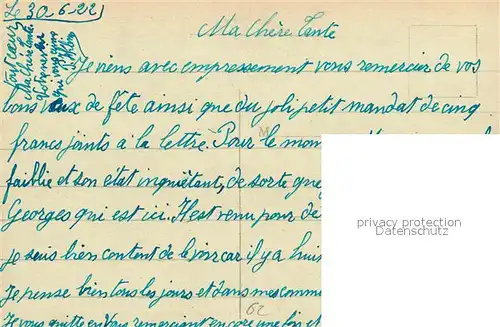 Le 30-6-22
Ma chère Tante
Je viens avec empressement vous remercier de vos
bons vœux de fête ainsi que du joli petit mandat de cinq
francs joints à la lettre. Pour le mom
faiblie et son état inquiétant, de sorte que
Georges qui est ici. Il est venu pour de
je suis bien content de le voir car il y a huit
Je pense bien tous les jours et dans mes comm
Je vous quitte en vous remerciant encore une fois et
privacy protection
CARTANDO.DE
62